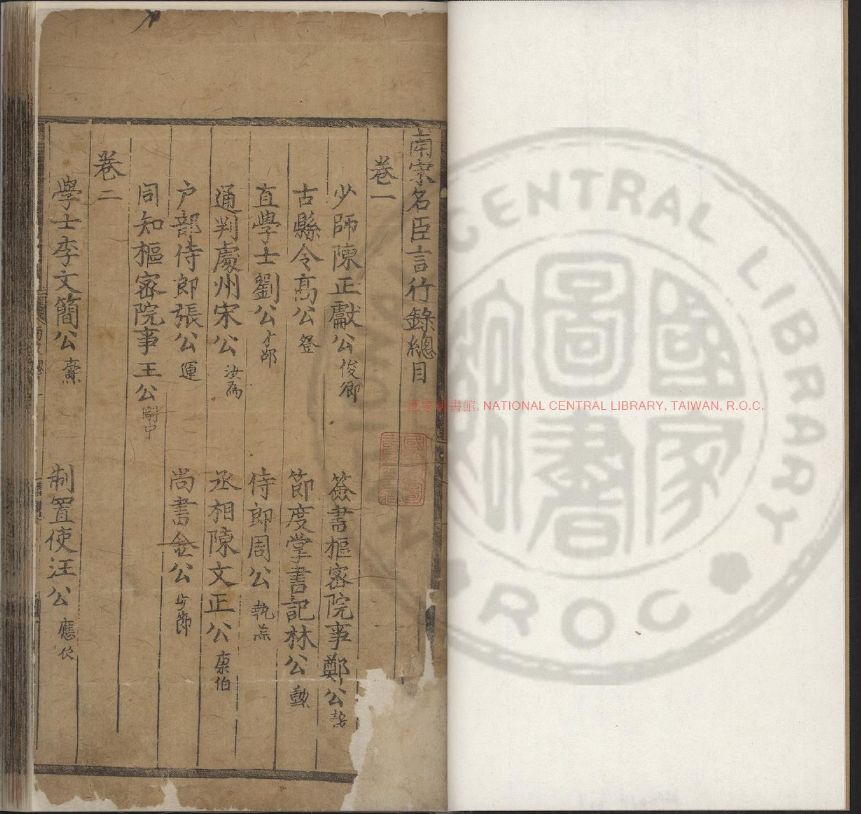 南宋名臣言行錄總目
卷一
少師陳正獻公 俊卿
簽書樞密院事鄭公
古縣令髙公 登
節度掌書記林公 勳
直學士劉公 才邵
侍郎周公 執羔
通判處州宋公 汝為
丞相陳文正公 康伯
户部侍郎張公 運
尚書金公 安節
同知樞密院事王公 剛中
卷二
學士李文簡公 燾
制置使汪公 應辰
國家圖書館, NATIONAL CENTRAL LIBRARY, TAIWAN, R.O.C.
CENTRAL LIBRARY
R.O.C
國家圖書館